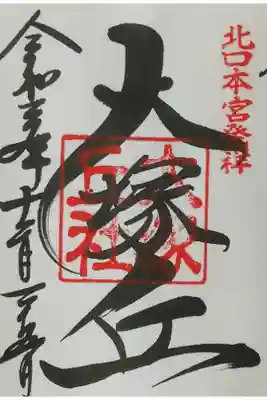 北口本宮発祥
大塚丘
大塚
丘社
令和三年十二月二十五日